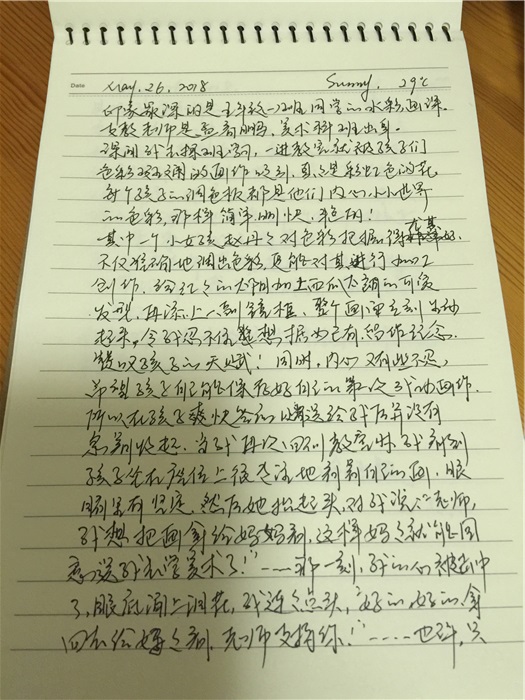 Date May. 26, 2018 Sunny. 29℃
印象最深的是五年级一班同学的水彩画课.
支教老师是孟 ,美术科班出身.
课间我去探班学习,一进教室就被孩子们
色彩斑斓的画作吸引,真是彩虹色的花
每个孩子的调色板都是他们内心小小世界
的色彩,那样简单明快,强烈!
其中一个小女孩赵丹丹对色彩把握得尤其好.
不仅能不同地调出色彩,更能对其进行加工
创作,给红红的太阳加上西瓜太郎的可爱
发型,再添上一副镜框,整个画面立刻生动
起来,令我忍不住想据为己有留作纪念.
赞叹孩子的天赋!同时,内心又有些不忍,
希望孩子自己能保存好自己的第一次 画作.
所以在孩子爽快答应赠送给我后并没有
急着收起.当我再次回到教室时我看到
孩子坐在座位上很专注地看着自己的画,眼
睛里有坚定.然后她抬起头,对我说:“老师,
我想把画拿给妈妈看,这样妈妈就能同
意送我去学美术了!”……那一刻,我的心被击中
了,眼底闪上泪花,我连连点头,“好的,好的,拿
回去给妈妈看,老师支持你!”……也许,只